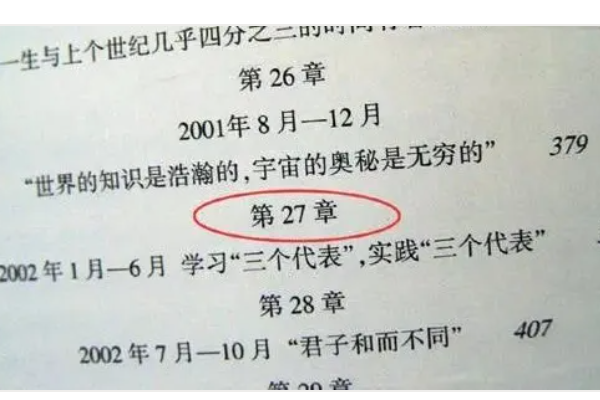 一生与上个世纪几乎四分之三的时间有着
第 26 章
2001年 8 月—12 月
“世界的知识是浩瀚的,宇宙的奥秘是无穷的” 379
第 27 章
2002 年 1 月—6 月 学习“三个代表”,实践“三个代表”
第 28 章
2002 年 7 月—10 月 “君子和而不同” 407
第 29 章